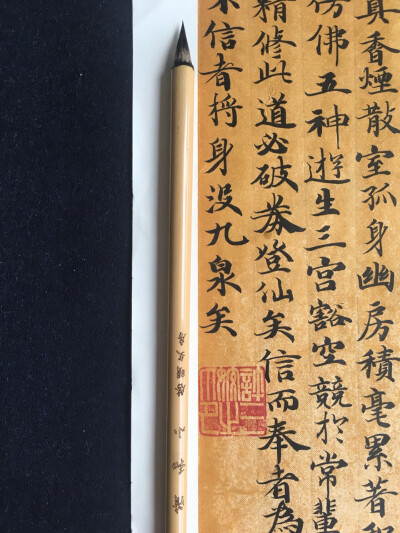 真香煙散室孤身幽房積毫累著和
彷佛五神遊生三宮豁空競於常輩
精修此道必破券登仙矣信而奉者為
不信者将身没九泉矣